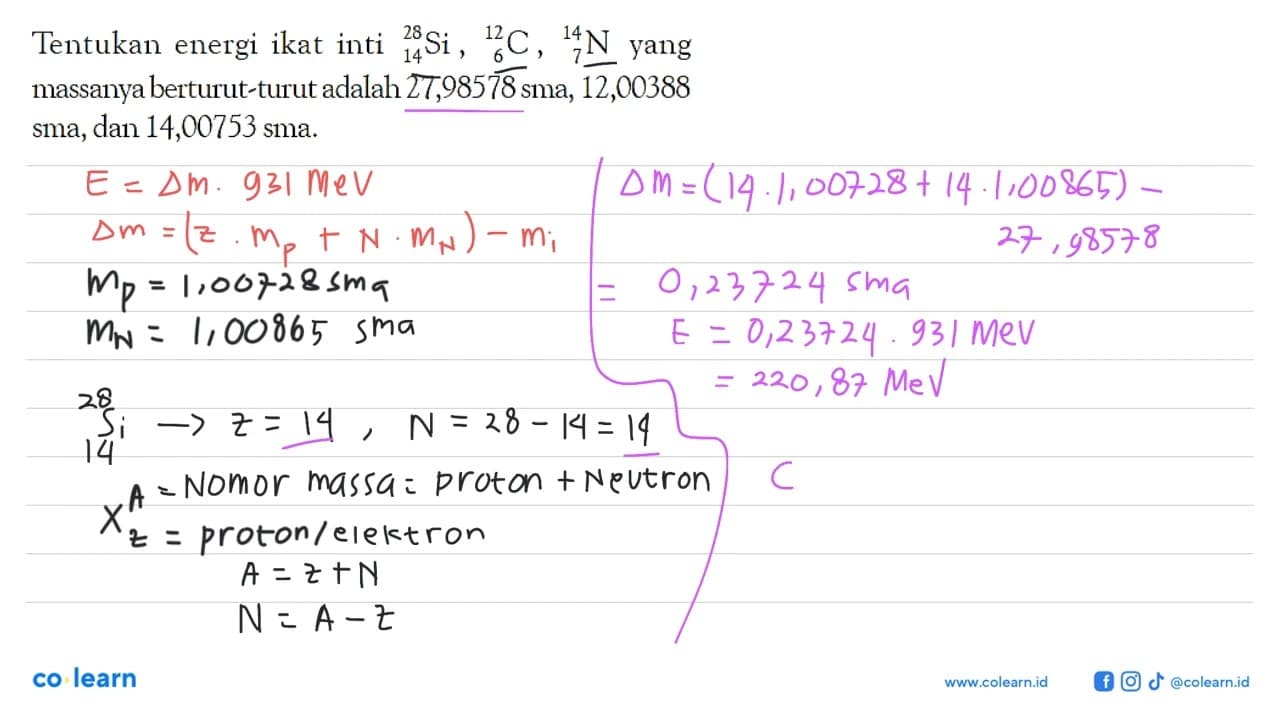 Tentukan energi ikat inti ²⁸₁₄Si, ¹²₆C, ¹⁴₇N yang
massanya berturut-turut adalah 27,98578 sma, 12,00388
sma, dan 14,00753 sma.
E = Δm. 931 MeV
Δm = (z . mp + N . mN) - mi
mp = 1,00728 sma
mN = 1,00865 sma
²⁸₁₄Si → z = 14 , N = 28 - 14 = 14
X A = Nomor massa = proton + Neutron
z = proton/elektron
A = z + N
N = A - z
Δm = (14 . 1,00728 + 14 . 1,00865) -
27,98578
= 0,23724 sma
E = 0,23724 . 931 MeV
= 220,87 MeV
C
co learn
www.colearn.id
@colearn.id